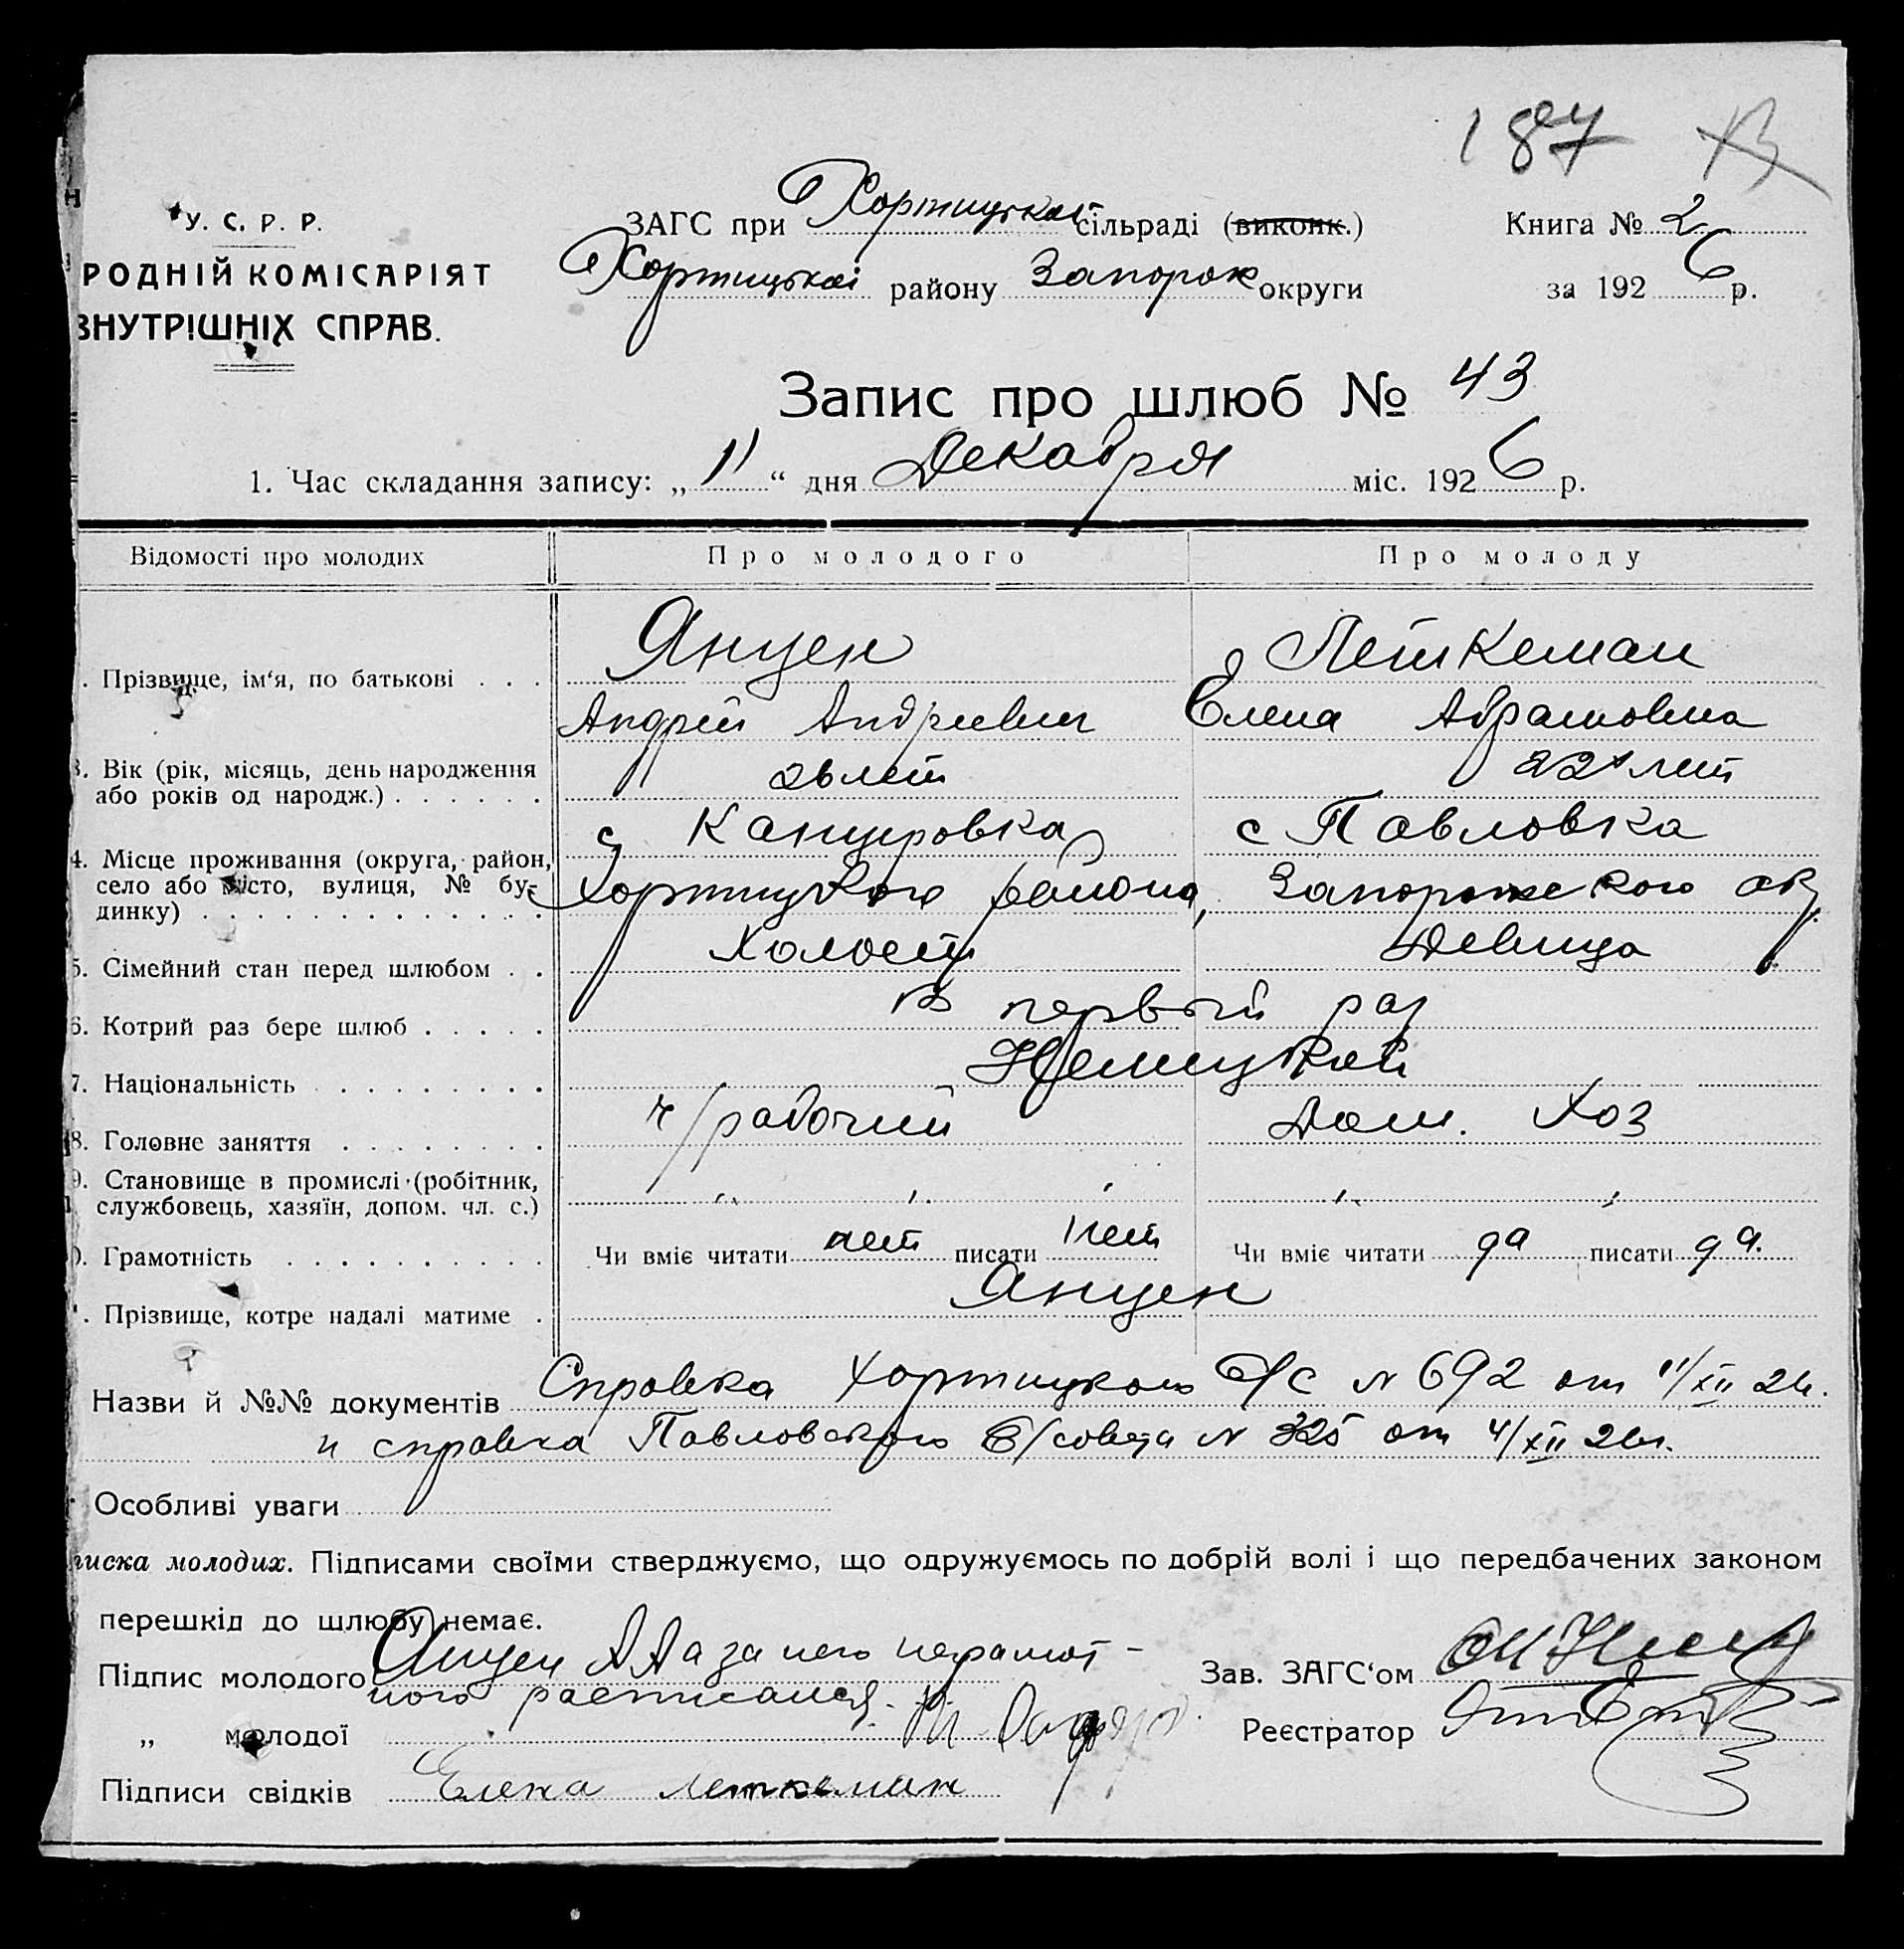 187 В
У. С. Р. Р.
РОДНІЙ КОМІСАРІЯТ
ВНУТРІШНІХ СПРАВ.
ЗАГС при Хортицькой сільраді (виконк.)
Хортицькоі району Запорож округи
Книга № 2
за 1926 р.
Запис про шлюб № 43
1. Час складання запису: „11“ дня Декабря міс. 1926 р.
Відомості про молодих Про молодого Про молоду
. Прізвище, ім‘я, по батькові . . . Янцен Леткеман
Андрей Андреевич Елена Абрамовна
3. Вік (рік, місяць, день народження
або років од народж.) . . . . . . 26 лет 22 лет
с Канцеровка с Павловка
4. Місце проживання (округа, район,
село або місто, вулиця, № бу-
динку) . . . . . . . . . . . . . . Хортицкого района, Запорожского окр.
5. Сімейний стан перед шлюбом . . Холост Девица
6. Котрий раз бере шлюб . . . . . В первый раз
7. Національність . . . . . . . . Немецкой
8. Головне заняття . . . . . . . . ч/рабочий Дом. Хоз
9. Становище в промислі (робітник,
службовець, хазяїн, допом. чл. с.) „ „ „ „ „
). Грамотність . . . . . . . . . . Чи вміє читати нет писати нет Чи вміє читати да писати да.
. Прізвище, котре надалі матиме . Янцен
Назви й №№ документів Справка Хортицкого С/С № 692 от 11/XII 26г.
и справка Павловского С/совета № 325 от 4/XII 26г.
Особливі уваги
писка молодих. Підписами своїми стверджуємо, що одружуємось по добрій волі і що передбачених законом
перешкід до шлюбу немає.
Підпис молодого Янцен А А а за него неграмот-
ного расписался
„ молодої
Підписи свідків Елена Леткеман
Зав. ЗАГС‘ом
Реєстратор